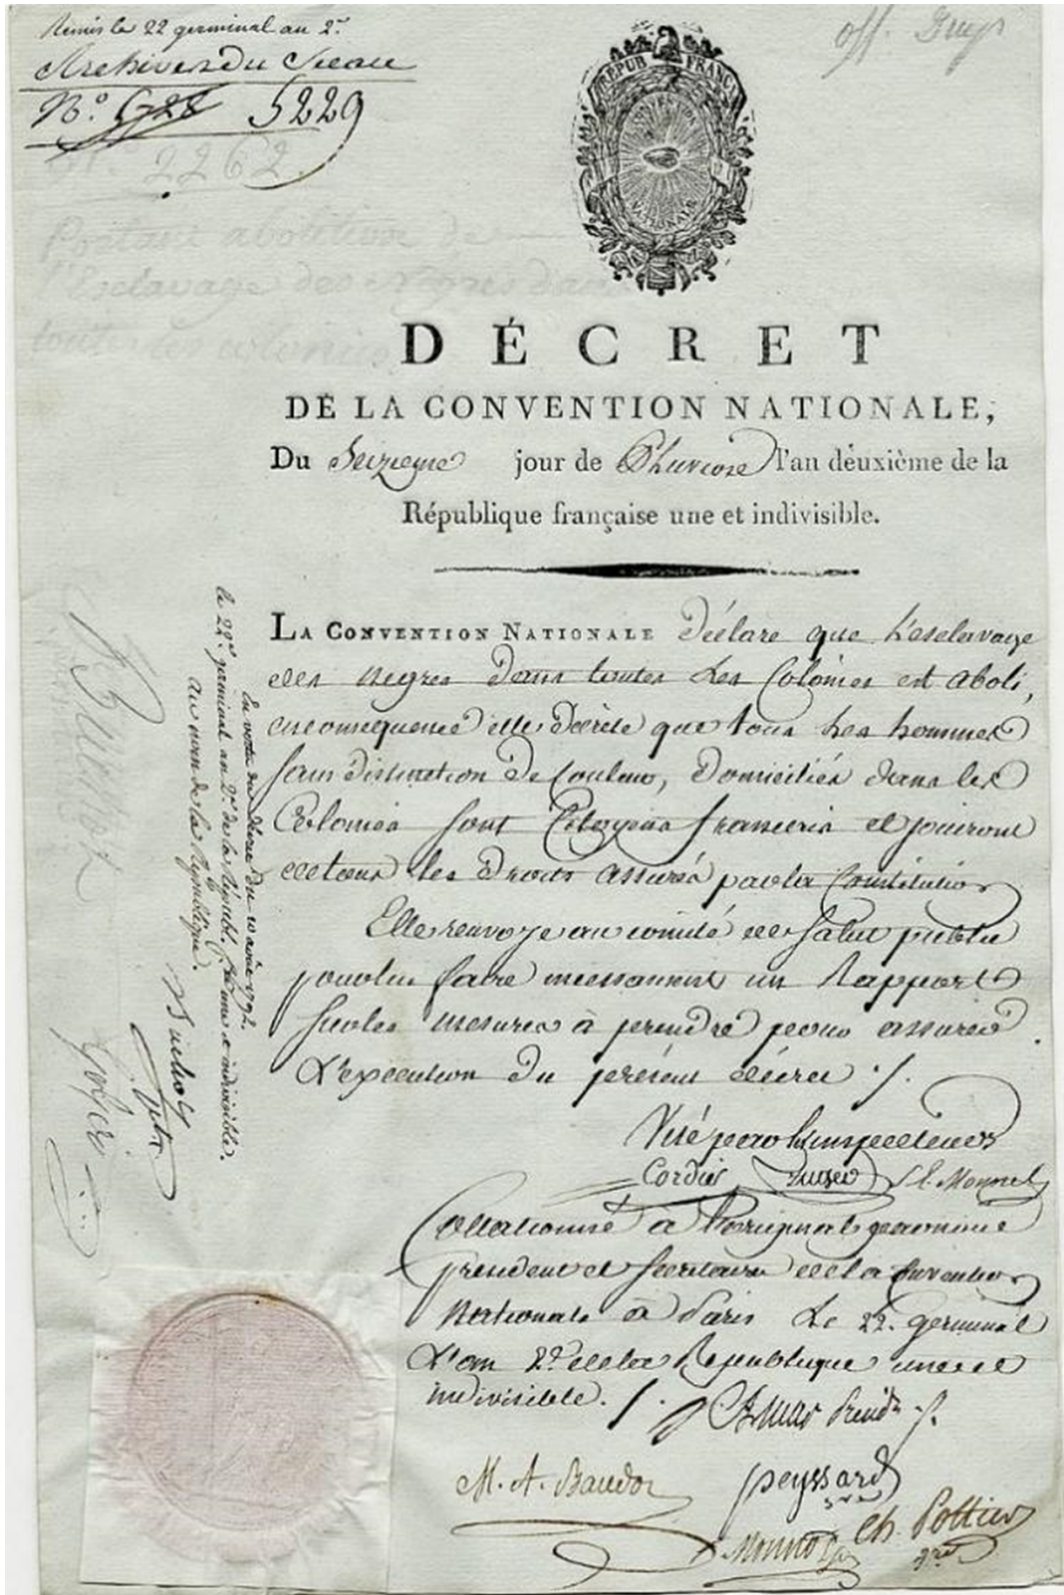 Remis le 22 germinal an 2.e
Archives du Sceau
N.o 5229
2262
Portant abolition de
l'Esclavage des Negres dans
toutes les colonies
off.
RÉPUB FRANÇ
DÉCRET
DE LA CONVENTION NATIONALE,
Du Seizieme jour de Pluviose l'an deuxième de la
République française une et indivisible.
LA CONVENTION NATIONALE déclare que l'esclavage
des negres dans toutes les Colonies est aboli,
en consequence elle décrète que tous les hommes
sans distinction de Couleur, domiciliés dans les
Colonies sont Citoyens francais et jouiront
de tous les droits assurés par la Constitution
Elle renvoye au comité de Salut public
pour lui faire incessament un Rapport
sur les mesures à prendre pour assurer
L'execution du présent décret ./.
Visé par les inspecteurs
Cordier Auger S. E. Monnel
Collationné à l'original par nous
president et Secretaires de la Convention
Nationale à Paris Le 22. Germinal
L'an 2.e de la République une et
indivisible. ./.
Amar Presid.t
M. A. Baudot
Peyssard
Monnot
Ch. Pottier
En vertu du décret du 10 août 1792.
le 22.e germinal an 2.e de la Républ. une et indivisible.
au nom de la République.
Buchot
Gohier